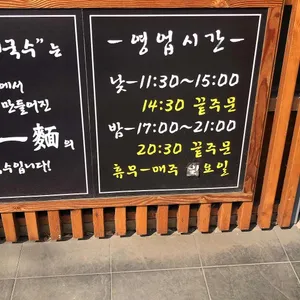 국수"는
에서
만들어진
一麵의
수입니다!
-영업시간-
낮-11:30~15:00
14:30 끝주문
밤-17:00~21:00
20:30 끝주문
휴무-매주 월요일